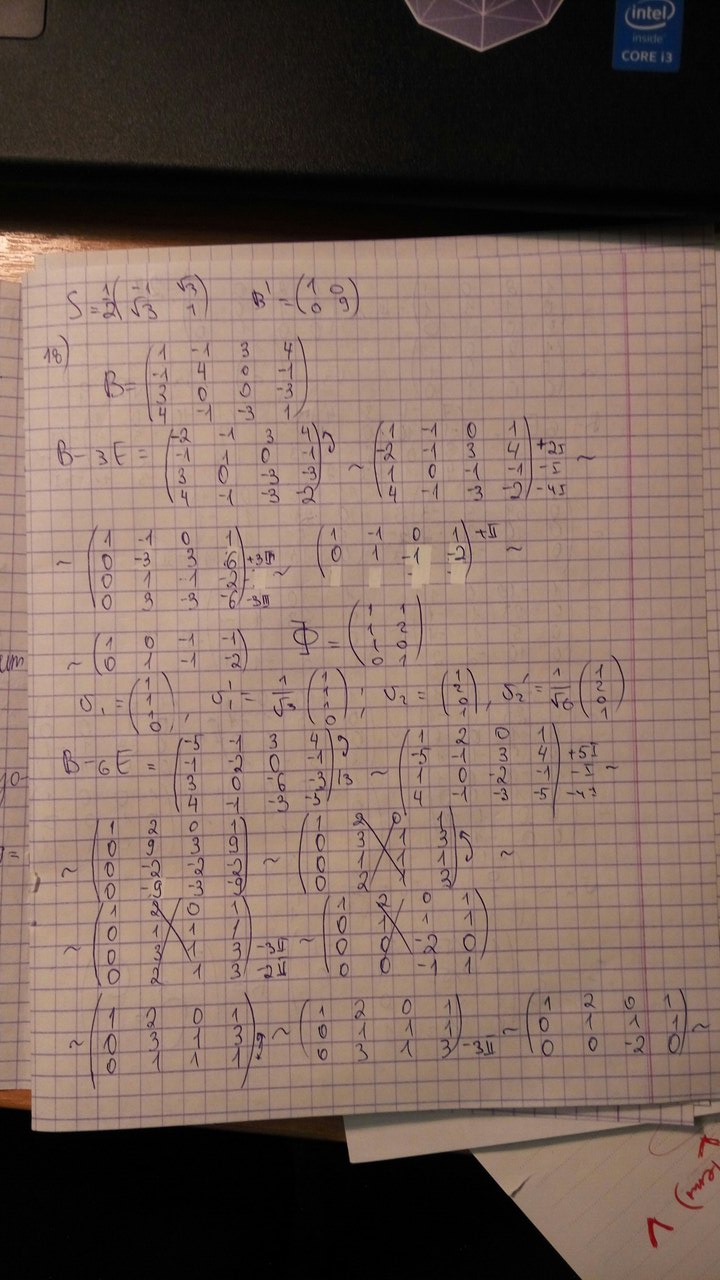 intel
inside
CORE i3
S = 1/2 (-1 √3; √3 1) B' = (1 0; 0 9)
18)
B = (1 -1 3 4; -1 4 0 -1; 3 0 0 -3; 4 -1 -3 1)
B - 3E = (-2 -1 3 4; -1 1 0 -1; 3 0 -3 -3; 4 -1 -3 -2) ~ (1 -1 0 1; -2 -1 3 4; 1 0 -1 -1; 4 -1 -3 -2) +2I -I -4I ~
~ (1 -1 0 1; 0 -3 3 6; 0 1 -1 -2; 0 3 -3 -6) +3II -3II ~ (1 -1 0 1; 0 1 -1 -2) +II ~
~ (1 0 -1 -1; 0 1 -1 -2) Φ = (1 1; 1 2; 1 0; 0 1)
υ₁ = (1; 1; 1; 0), υ₁' = 1/√3 (1; 1; 1; 0); υ₂ = (1; 2; 0; 1), υ₂' = 1/√6 (1; 2; 0; 1)
B - 6E = (-5 -1 3 4; -1 -2 0 -1; 3 0 -6 -3; 4 -1 -3 -5) |:3 ~ (1 2 0 1; -5 -1 3 4; 1 0 -2 -1; 4 -1 -3 -5) +5I -I -4I ~
~ (1 2 0 1; 0 9 3 9; 0 -2 -2 -2; 0 -9 -3 -9) ~ (1 2 0 1; 0 3 1 3; 0 1 1 1; 0 2 1 3) ~
~ (1 2 0 1; 0 1 1 1; 0 3 1 3; 0 2 1 3) -3II -2II ~ (1 2 0 1; 0 1 1 1; 0 0 -2 0; 0 0 -1 1)
~ (1 2 0 1; 0 3 1 3; 0 1 1 1) ~ (1 2 0 1; 0 1 1 1; 0 3 1 3) -3II ~ (1 2 0 1; 0 1 1 1; 0 0 -2 0) ~